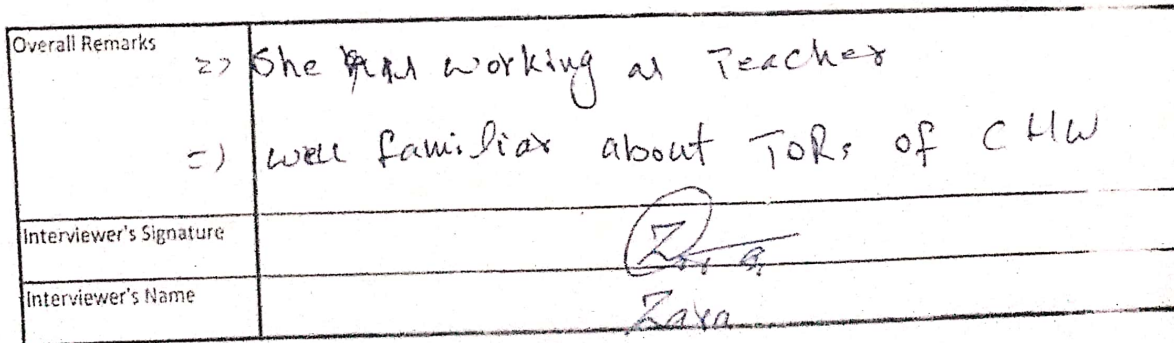 Overall Remarks
=> She was working as Teacher
=) well familiar about TORs of CHW
Interviewer's Signature
Zara
Interviewer's Name
Zara